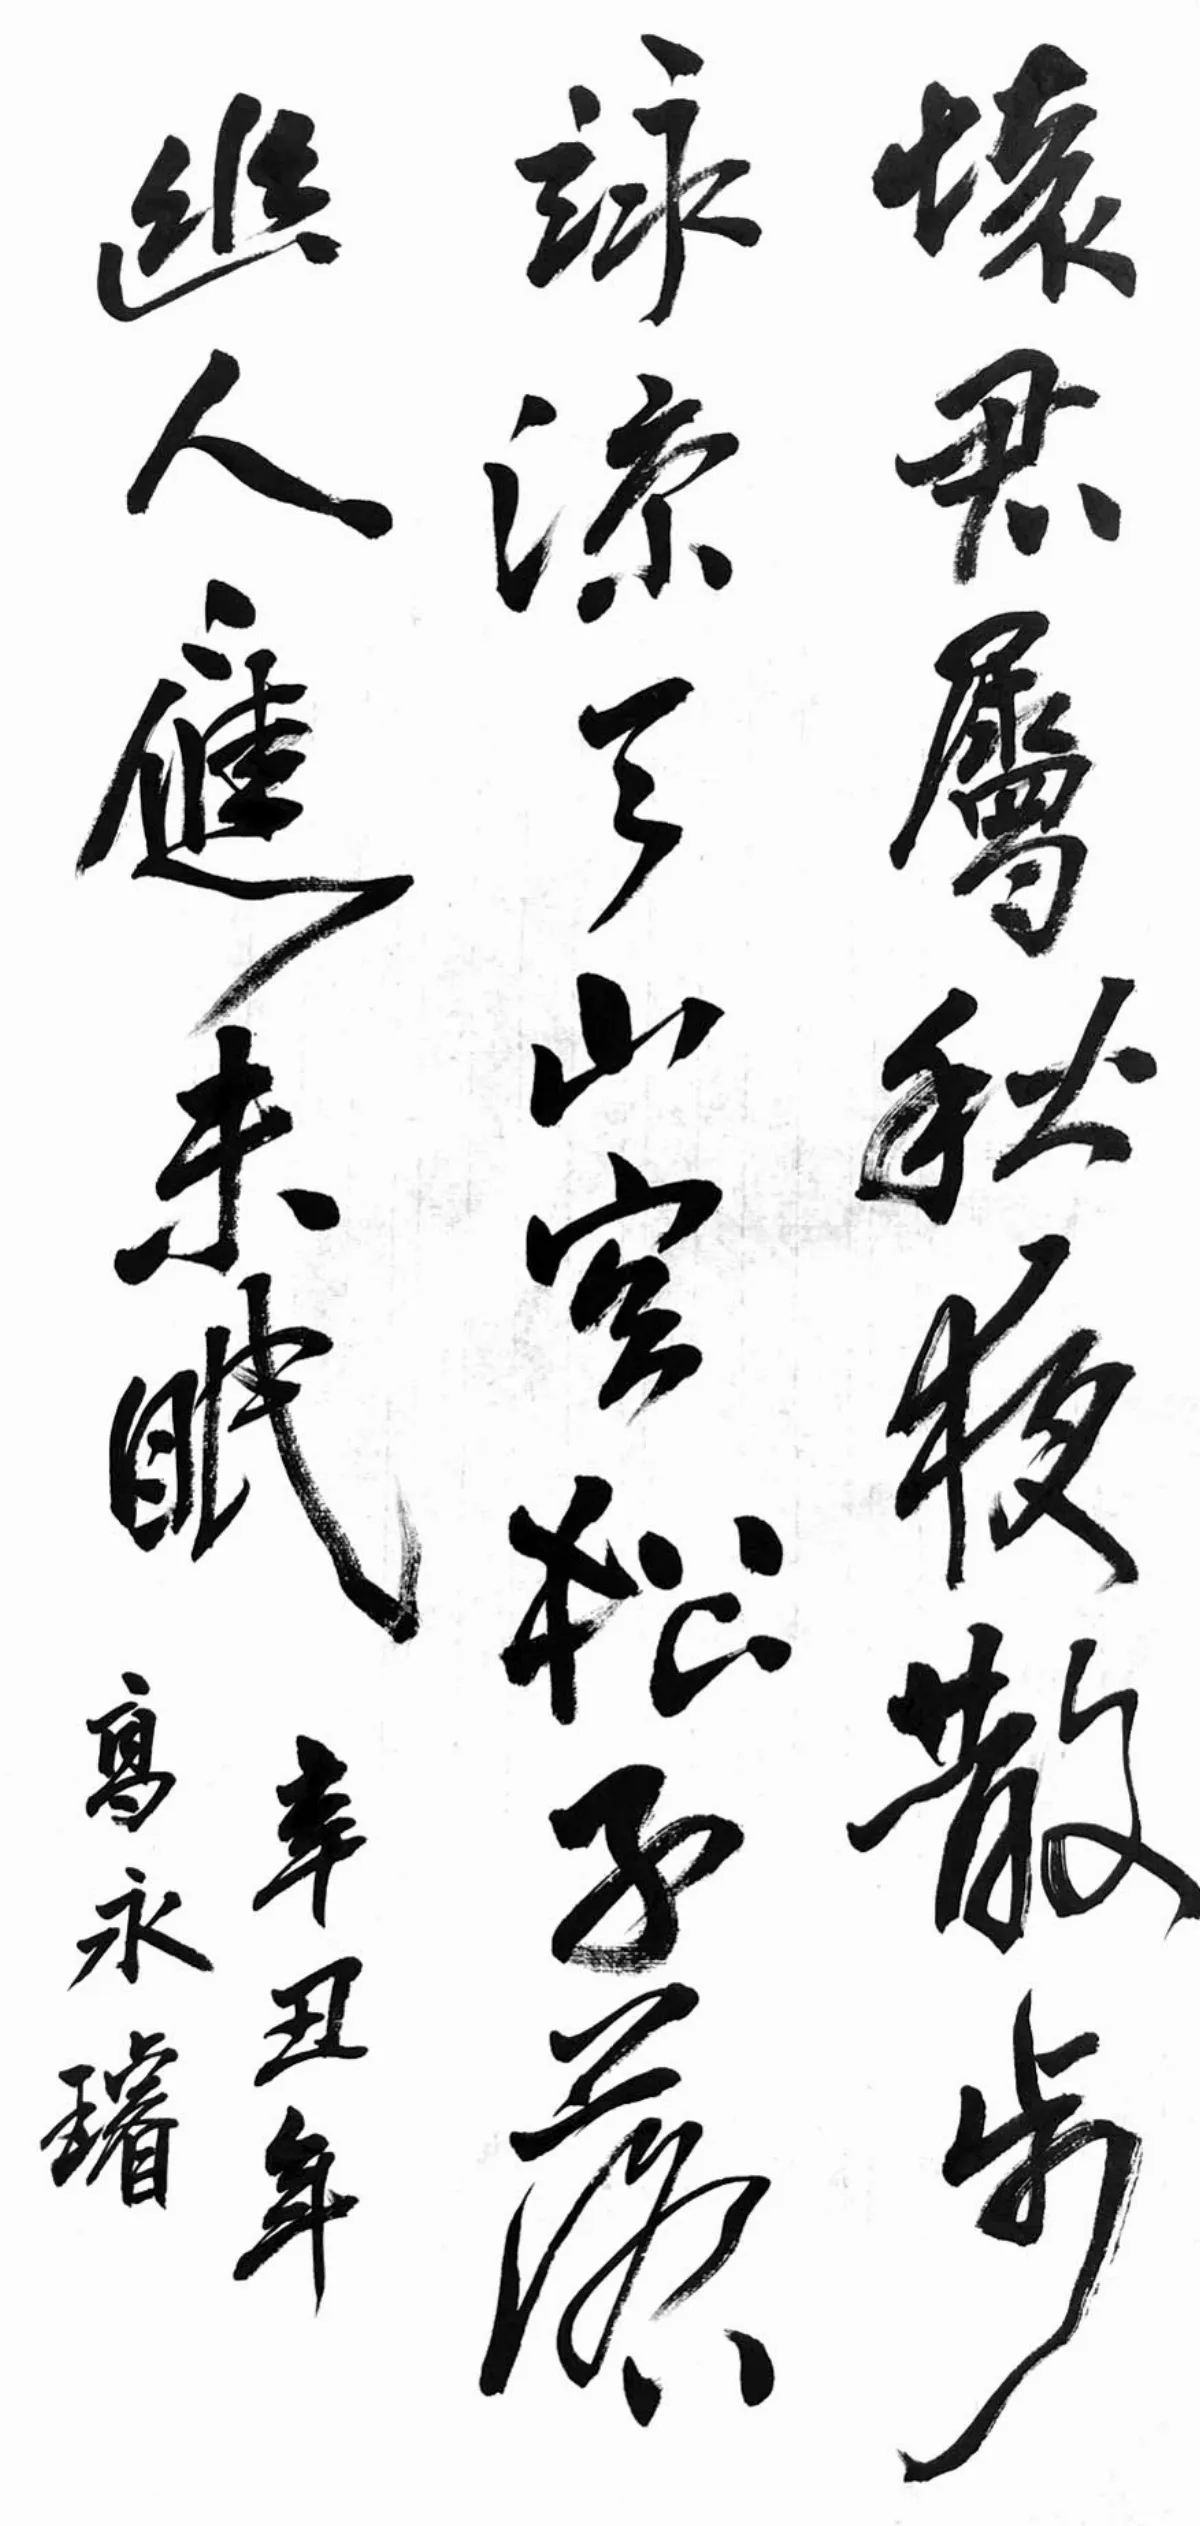 懷君屬秋夜散步
詠涼天山空松子落
幽人應未眠
辛丑年
高永璿